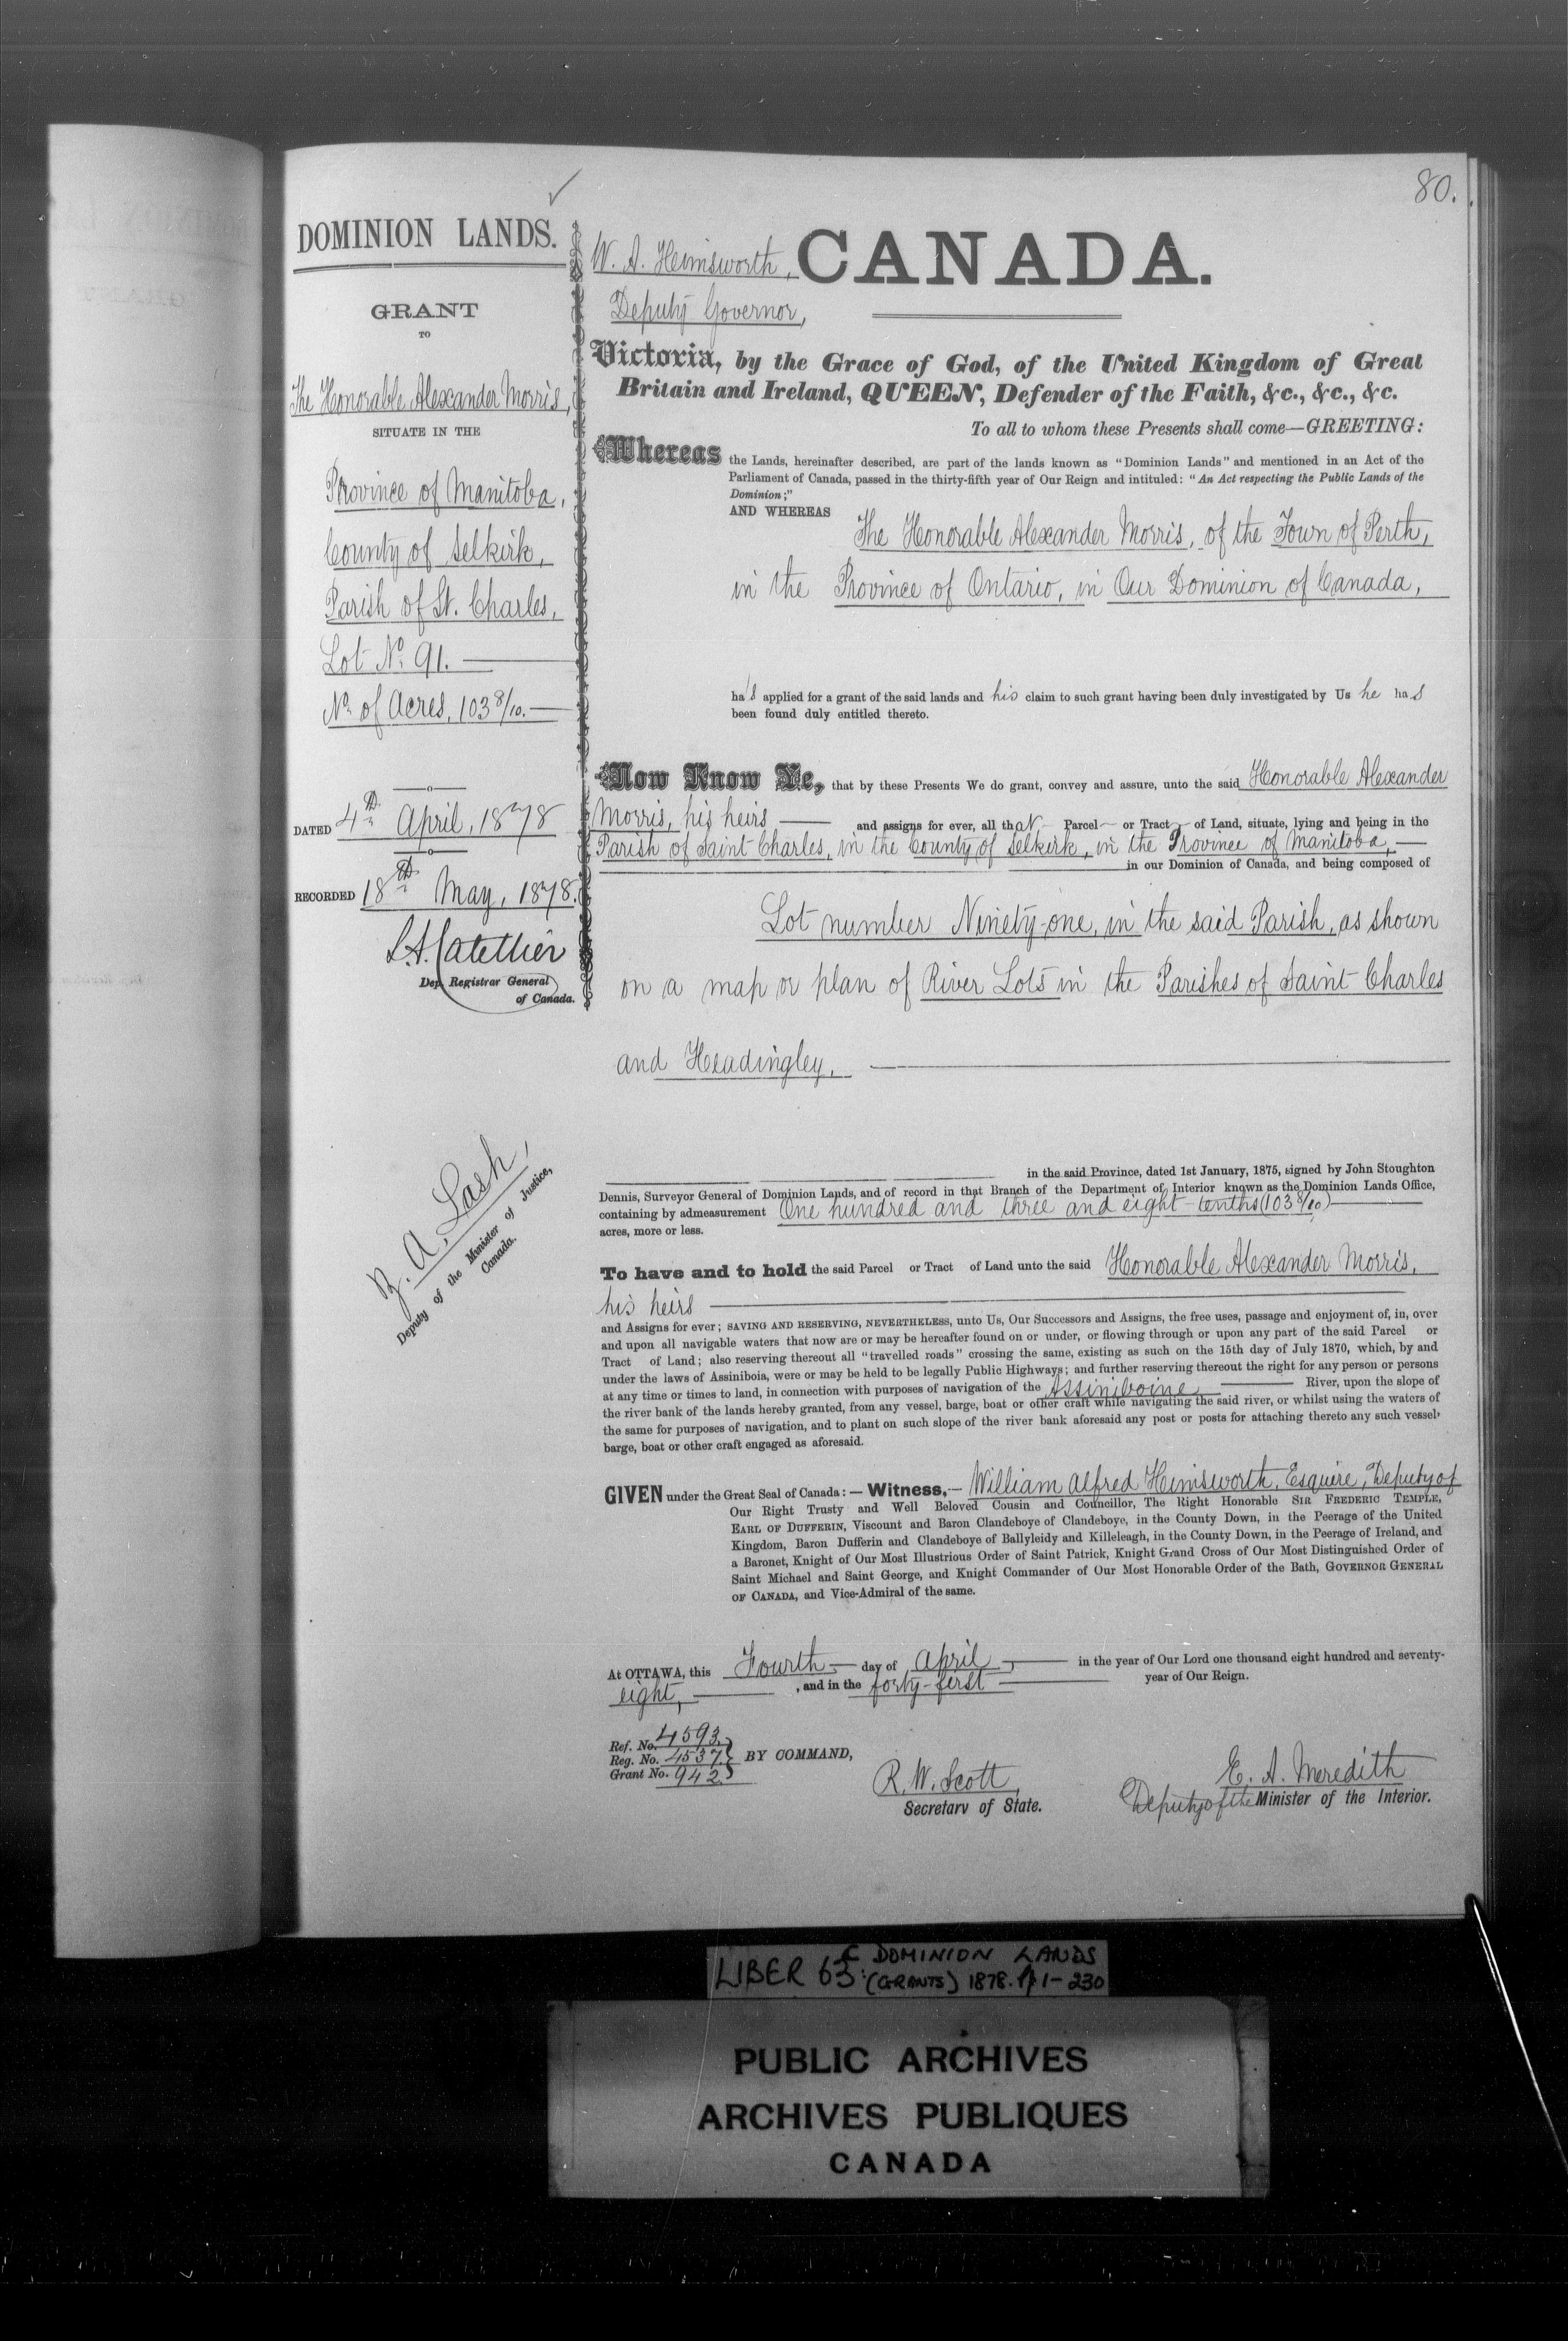 80.
DOMINION LANDS.
GRANT
TO
The Honorable Alexander Morris,
SITUATE IN THE
Province of Manitoba,
County of Selkirk,
Parish of St. Charles,
Lot No. 91.
No. of Acres, 103 8/10.
DATED 4th April, 1878
RECORDED 18th May, 1878.
L.A. Catellier
Dep. Registrar General
of Canada.
Z. A. Lash,
Deputy of the Minister of Justice,
Canada.
W. A. Himsworth,
Deputy Governor,
CANADA.
Victoria, by the Grace of God, of the United Kingdom of Great
Britain and Ireland, QUEEN, Defender of the Faith, &c., &c., &c.
To all to whom these Presents shall come—GREETING:
Whereas the Lands, hereinafter described, are part of the lands known as "Dominion Lands" and mentioned in an Act of the
Parliament of Canada, passed in the thirty-fifth year of Our Reign and intituled: "An Act respecting the Public Lands of the
Dominion;"
AND WHEREAS The Honorable Alexander Morris, of the Town of Perth,
in the Province of Ontario, in Our Dominion of Canada,
has applied for a grant of the said lands and his claim to such grant having been duly investigated by Us he has
been found duly entitled thereto.
Now Know Ye, that by these Presents We do grant, convey and assure, unto the said Honorable Alexander
Morris, his heirs and assigns for ever, all that Parcel or Tract of Land, situate, lying and being in the
Parish of Saint Charles, in the County of Selkirk, in the Province of Manitoba,
in our Dominion of Canada, and being composed of
Lot number Ninety-one, in the said Parish, as shown
on a map or plan of River Lots in the Parishes of Saint Charles
and Headingley,
in the said Province, dated 1st January, 1875, signed by John Stoughton
Dennis, Surveyor General of Dominion Lands, and of record in that Branch of the Department of Interior known as the Dominion Lands Office,
containing by admeasurement One hundred and three and eight-tenths (103 8/10)
acres, more or less.
To have and to hold the said Parcel or Tract of Land unto the said Honorable Alexander Morris,
his heirs
and Assigns for ever; SAVING AND RESERVING, NEVERTHELESS, unto Us, Our Successors and Assigns, the free uses, passage and enjoyment of, in, over
and upon all navigable waters that now are or may be hereafter found on or under, or flowing through or upon any part of the said Parcel or
Tract of Land; also reserving thereout all "travelled roads" crossing the same, existing as such on the 15th day of July 1870, which, by and
under the laws of Assiniboia, were or may be held to be legally Public Highways; and further reserving thereout the right for any person or persons
at any time or times to land, in connection with purposes of navigation of the Assiniboine River, upon the slope of
the river bank of the lands hereby granted, from any vessel, barge, boat or other craft while navigating the said river, or whilst using the waters of
the same for purposes of navigation, and to plant on such slope of the river bank aforesaid any post or posts for attaching thereto any such vessel,
barge, boat or other craft engaged as aforesaid.
GIVEN under the Great Seal of Canada:—Witness,—William Alfred Himsworth, Esquire, Deputy of
Our Right Trusty and Well Beloved Cousin and Councillor, The Right Honorable SIR FREDERIC TEMPLE,
EARL OF DUFFERIN, Viscount and Baron Clandeboye of Clandeboye, in the County Down, in the Peerage of the United
Kingdom, Baron Dufferin and Clandeboye of Ballyleidy and Killeleagh, in the County Down, in the Peerage of Ireland, and
a Baronet, Knight of Our Most Illustrious Order of Saint Patrick, Knight Grand Cross of Our Most Distinguished Order of
Saint Michael and Saint George, and Knight Commander of Our Most Honorable Order of the Bath, GOVERNOR GENERAL
OF CANADA, and Vice-Admiral of the same.
At OTTAWA, this Fourth day of April, in the year of Our Lord one thousand eight hundred and seventy-
eight, , and in the forty-first year of Our Reign.
Ref. No. 4593.
Reg. No. 4537. BY COMMAND,
Grant No. 942.
R. W. Scott,
Secretary of State.
E. A. Meredith
Deputy of the Minister of the Interior.
LIBER 63: C DOMINION LANDS
(GRANTS) 1878. pp 1-230
PUBLIC ARCHIVES
ARCHIVES PUBLIQUES
CANADA